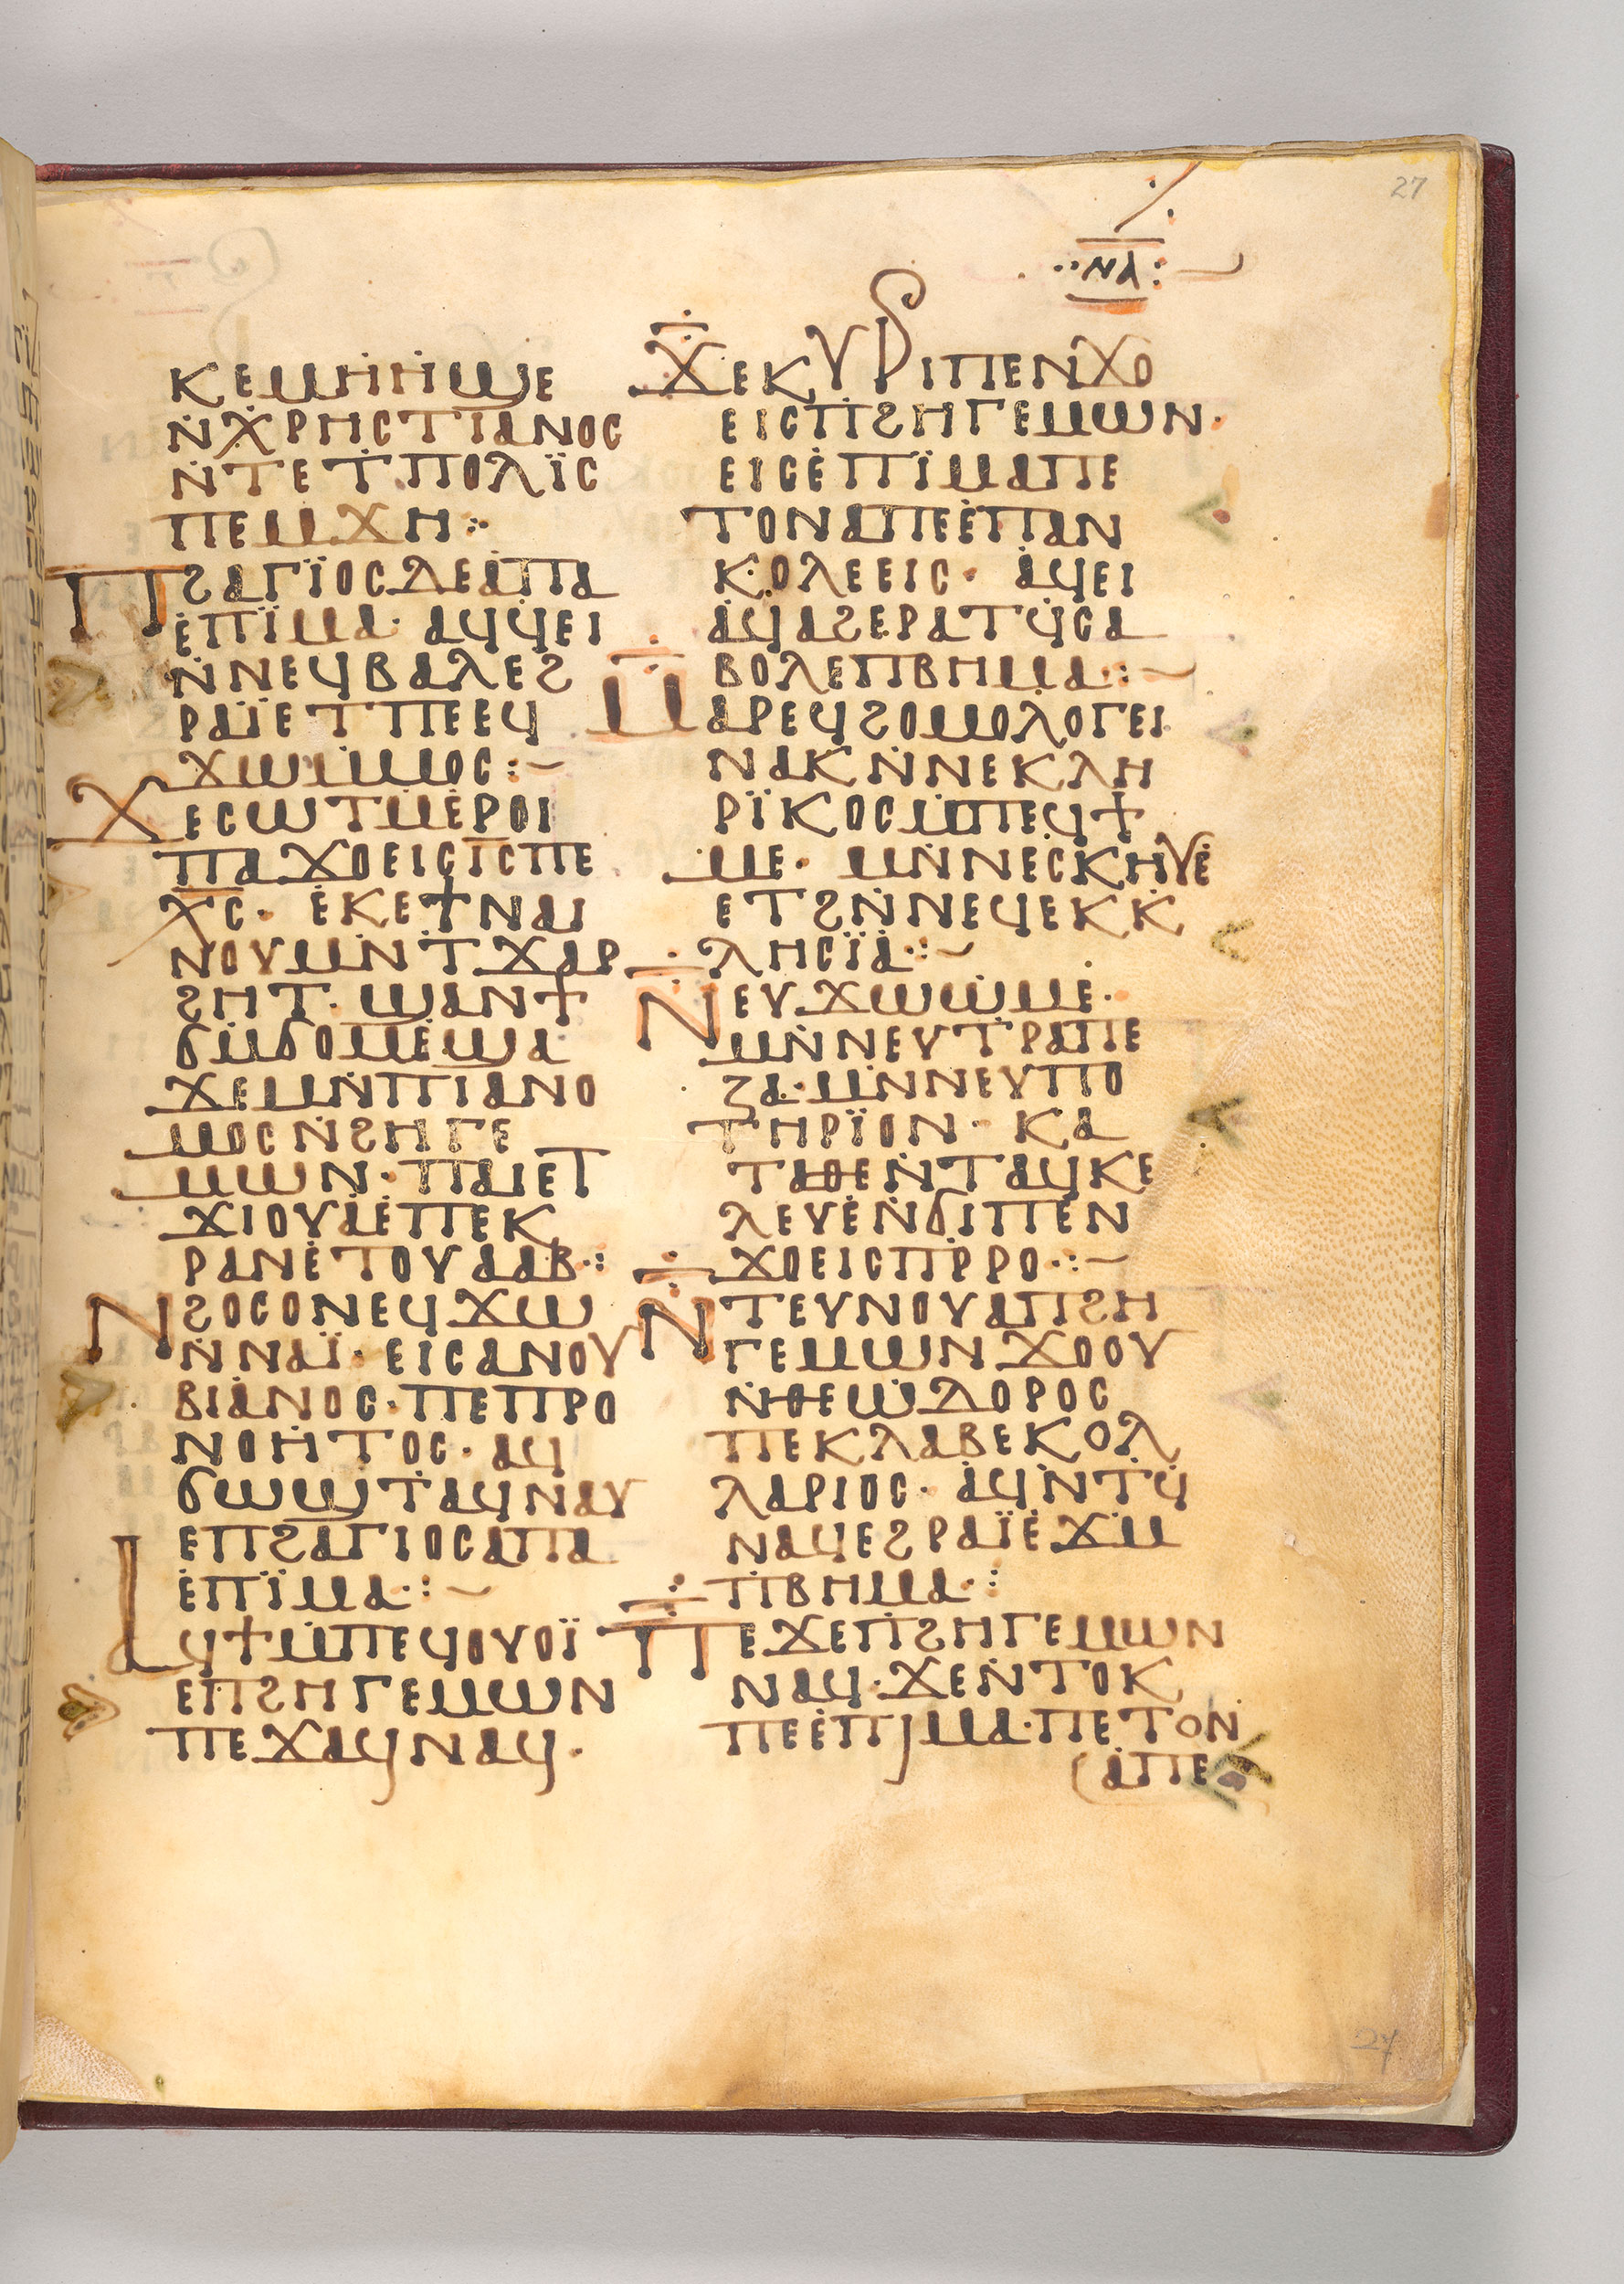 27
ⲛⲁ
ⲕⲉⲙⲏⲏϣⲉ
ⲛ̇ⲭⲣⲏⲥⲧⲓⲁⲛⲟⲥ
ⲛ̇ⲧⲉⲧ̇ⲡⲟⲗⲓ̈ⲥ
ⲡⲉⲙϫⲏ:·
ⲡϩⲁⲅⲓ̈ⲟⲥⲇⲉⲁ̇ⲡⲁ
ⲉ̇ⲡⲓ̈ⲙⲁ· ⲁϥϥⲉⲓ
ⲛ̇ⲛⲉϥⲃⲁⲗⲉϩ
ⲣⲁⲓ̈ⲉⲧⲡⲉⲉϥ
ϫⲱⲙ̇ⲙⲟⲥ:~
ϫⲉⲥⲱⲧⲙ̇ⲉ̇ⲣⲟⲓ
ⲡⲁϫⲟⲉⲓⲥⲓ̅ⲥ̅ⲡⲉ
ⲭ̅ⲥ̅· ⲉ̇ⲕⲉϯⲛⲁⲓ
ⲛⲟⲩⲙⲛ̇ⲧ̇ϫⲁⲣ
ϩⲏⲧ· ϣⲁⲛϯ
ϭⲙ̇ϭⲟⲙⲉ̇ϣⲁ
ϫⲉⲙⲛ̇ⲡⲓⲁⲛⲟ
ⲙⲟⲥⲛ̇ϩⲏⲅⲉ
ⲙⲱⲛ· ⲡⲁⲓⲉⲧ
ϫⲓⲟⲩⲁ̇ⲉ̇ⲡⲉⲕ
ⲣⲁⲛⲉ̇ⲧⲟⲩⲁⲁⲃ·:
ⲛϩⲟⲥⲟⲛⲉϥϫⲱ
ⲛ̇ⲛⲁⲓ̈· ⲉⲓⲥⲁⲛⲟⲩ
ⲃⲓⲁⲛⲟⲥ·ⲡⲉⲡⲣⲟ
ⲛⲟⲏⲧⲟⲥ· ⲁϥ
ϭⲱϣⲧ̇ⲁϥⲛⲁⲩ
ⲉⲡϩⲁⲅⲓⲟⲥⲁⲡⲁ
ⲉ̇ⲡⲓ̈ⲙⲁ·:~
ⲁϥϯⲙ̇ⲡⲉϥⲟⲩⲟⲓ̈
ⲉⲡϩⲏⲅⲉⲙⲱⲛ
ⲡⲉϫⲁϥⲛⲁϥ·
ϫⲉⲕⲩⲣⲓⲡⲉⲛϫⲟ
ⲉⲓⲥⲡ̇ϩⲏⲅⲉⲙⲱⲛ·
ⲉⲓⲥⲉ̇ⲡⲓ̈ⲙⲁⲡⲉ
ⲧⲟⲛⲁⲡⲉⲉ̇ⲡⲁⲛ
ⲕⲟⲗⲉⲉⲓⲥ· ⲁ̇ϥⲉⲓ
ⲁ̇ϥⲁϩⲉⲣⲁⲧϥ̇ⲥⲁ
ⲃⲟⲗⲉⲡⲃⲏⲙⲁ·:~
ⲙⲁⲣⲉϥϩⲟⲙⲟⲗⲟⲅⲉⲓ
ⲛⲁⲕⲛ̇ⲛⲉⲕⲗⲏ
ⲣⲓ̈ⲕⲟⲥⲙ̇ⲡⲉϥϯ
ⲙⲉ· ⲙⲛ̇ⲛⲉⲥⲕⲏⲩⲉ̇
ⲉⲧϩⲛ̇ⲛⲉϥⲉⲕⲕ
ⲗⲏⲥⲓ̈ⲁ·:~
ⲛⲉⲩϫⲱⲱ̇ⲙⲉ·
ⲙⲛ̇ⲛⲉⲩⲧⲣⲁⲡⲉ
ⲍⲁ·ⲙⲛ̇ⲛⲉⲩⲡⲟ
ⲧⲏⲣⲓ̈ⲟⲛ· ⲕⲁ
ⲧⲁⲑⲉⲛ̇ⲧⲁϥⲕⲉ
ⲗⲉⲩⲉ̇ⲛ̇ϭⲓⲡⲉⲛ
ϫⲟⲉⲓⲥⲡ̇ⲣⲣⲟ·:~
ⲛⲧⲉⲩⲛⲟⲩⲁⲡϩⲏ
ⲅⲉⲙⲱⲛϫⲟⲟⲩ
ⲛ̇ⲑⲉⲱ̇ⲇⲟⲣⲟⲥ
ⲡⲉⲕⲗⲁⲃⲉⲕⲟⲗ
ⲗⲁⲣⲓⲟⲥ· ⲁ̇ϥⲛ̇ⲧϥ̇
ⲛⲁϥⲉϩⲣⲁⲓ̈ⲉ̇ϫⲙ
ⲡ̇ⲃⲏⲙⲁ·:
ⲡⲉϫⲉⲡ̇ϩⲏⲅⲉⲙⲱⲛ
ⲛⲁϥ·ϫⲉⲛ̇ⲧⲟⲕ
ⲡⲉⲉ̇ⲡⲓⲙⲁ·ⲡⲉⲧⲟⲛ
(ⲁ̇ⲡⲉ
27